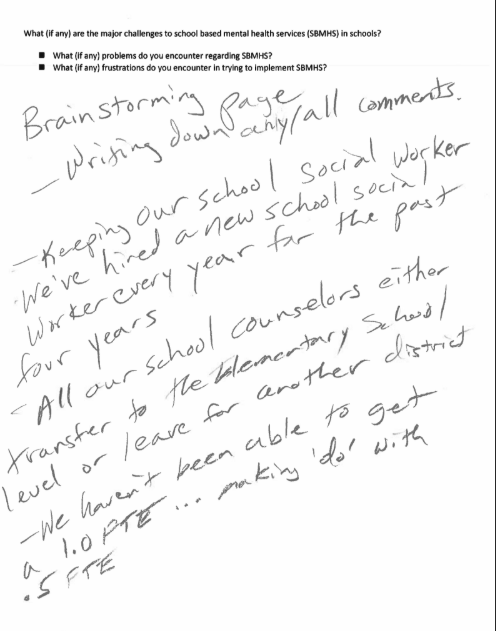 What (if any) are the major challenges to school based mental health services (SBMHS) in schools?
■ What (if any) problems do you encounter regarding SBMHS?
■ What (if any) frustrations do you encounter in trying to implement SBMHS?
Brainstorming Page
- Writing down any/all comments.
- Keeping our school Social Worker
We've hired a new school social
Worker every year for the past
four years
- All our school counselors either
transfer to the Elementary School
level or leave for another district
- We haven't been able to get
a 1.0 FTE ... making 'do' with
.5 FTE